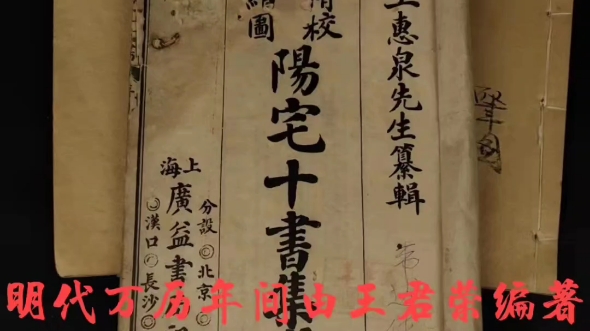 王惠泉先生纂輯
精校
繪圖
陽宅十書集
上海
廣益書
分設◎北京◎
◎漢口◎長沙◎
明代万历年间由王君荣编著